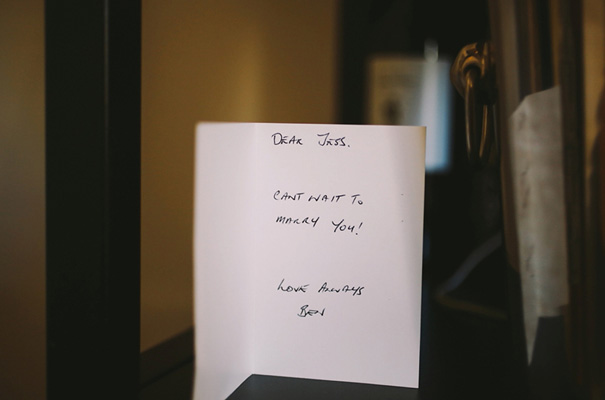 DEAR JESS.
CANT WAIT TO
MARRY YOU!
LOVE ALWAYS
BEN